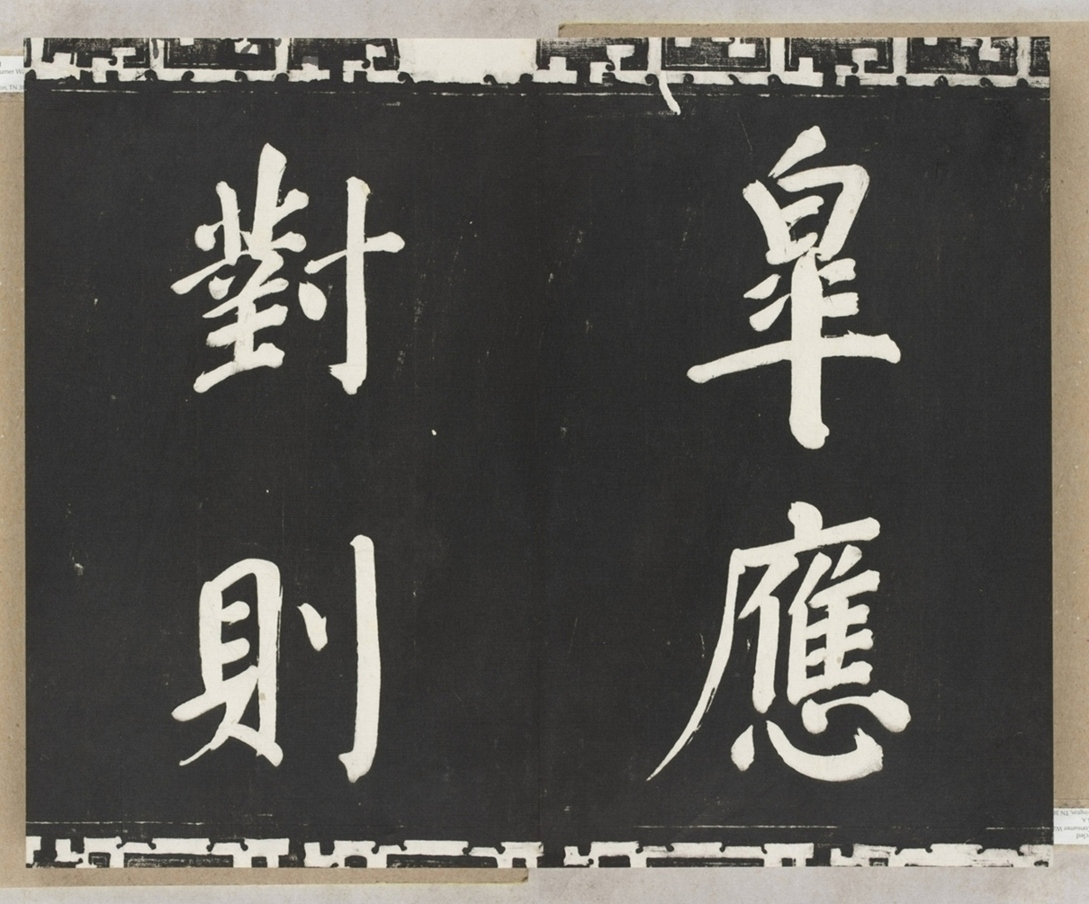 皐應
對則